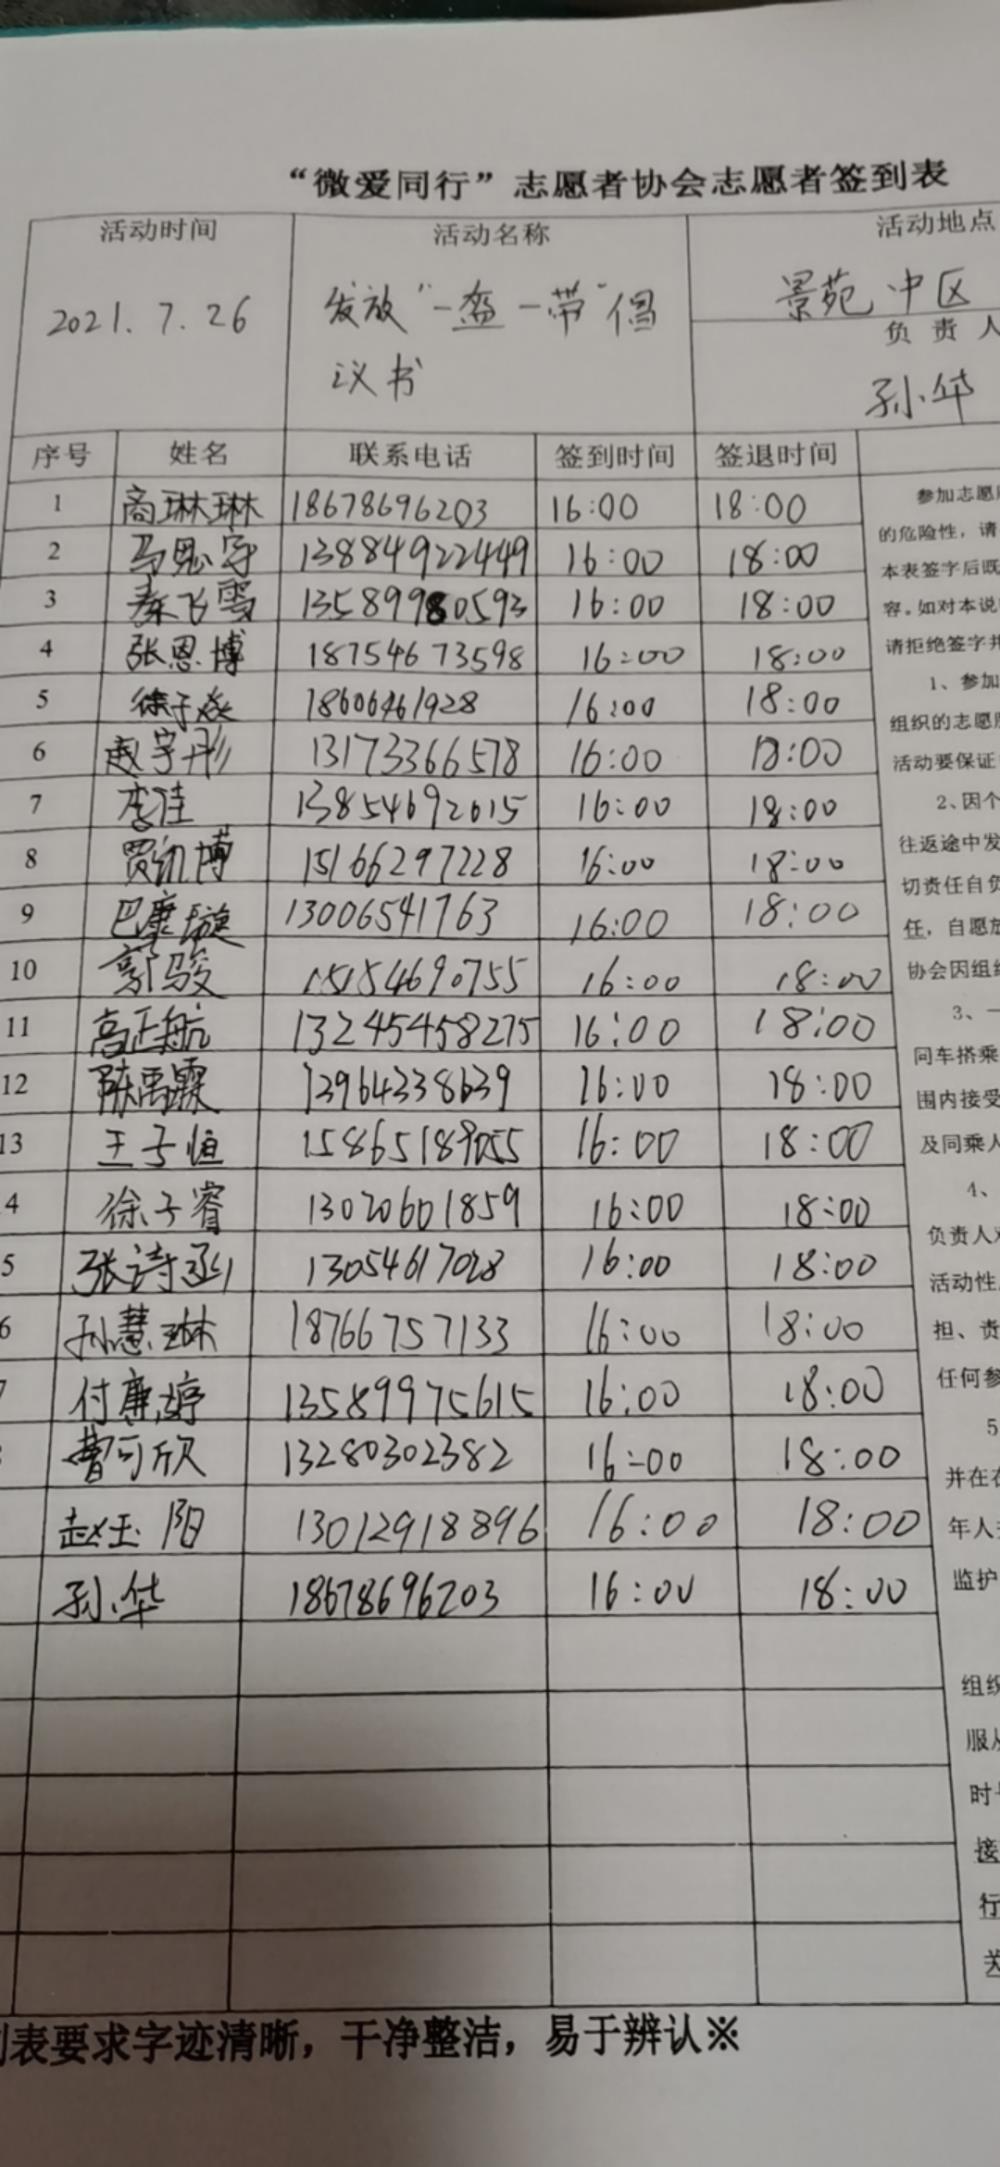 “微爱同行”志愿者协会志愿者签到表
活动时间 活动名称 活动地点
2021.7.26 发放“一盔一带”倡议书 景苑中区
负责人
孙华
序号 姓名 联系电话 签到时间 签退时间
1 商琳琳 18678696203 16:00 18:00
2 马思宇 13884922449 16:00 18:00
3 秦飞雪 13589980593 16:00 18:00
4 张恩博 18754673598 16:00 18:00
5 徐子焱 18606461928 16:00 18:00
6 赵宇彤 13173366578 16:00 18:00
7 李佳 13854692615 16:00 18:00
8 贾凯博 15166297228 16:00 18:00
9 巴康璇 13006541763 16:00 18:00
10 郭骏 15154690755 16:00 18:00
11 高正航 13245458275 16:00 18:00
12 陈禹霖 13964338639 16:00 18:00
13 王子恒 15865189055 16:00 18:00
4 徐子睿 13020601859 16:00 18:00
5 张诗函 13054617028 16:00 18:00
6 孙慧琳 18766757133 16:00 18:00
7 付康婷 13589975615 16:00 18:00
曹可欣 13280302382 16:00 18:00
赵玉阳 13012918896 16:00 18:00
孙华 18678696203 16:00 18:00
参加志愿
的危险性，请
本表签字后既
容。如对本说
请拒绝签字并
1、参加
组织的志愿
活动要保证
2、因个
往返途中发
切责任自负
任，自愿放
协会因组织
3、一
同车搭乘
围内接受
及同乘人
4、
负责人对
活动性
担、责
任何参
5
并在
年人
监护
组织
服从
时
接
行
关
到表要求字迹清晰，干净整洁，易于辨认※